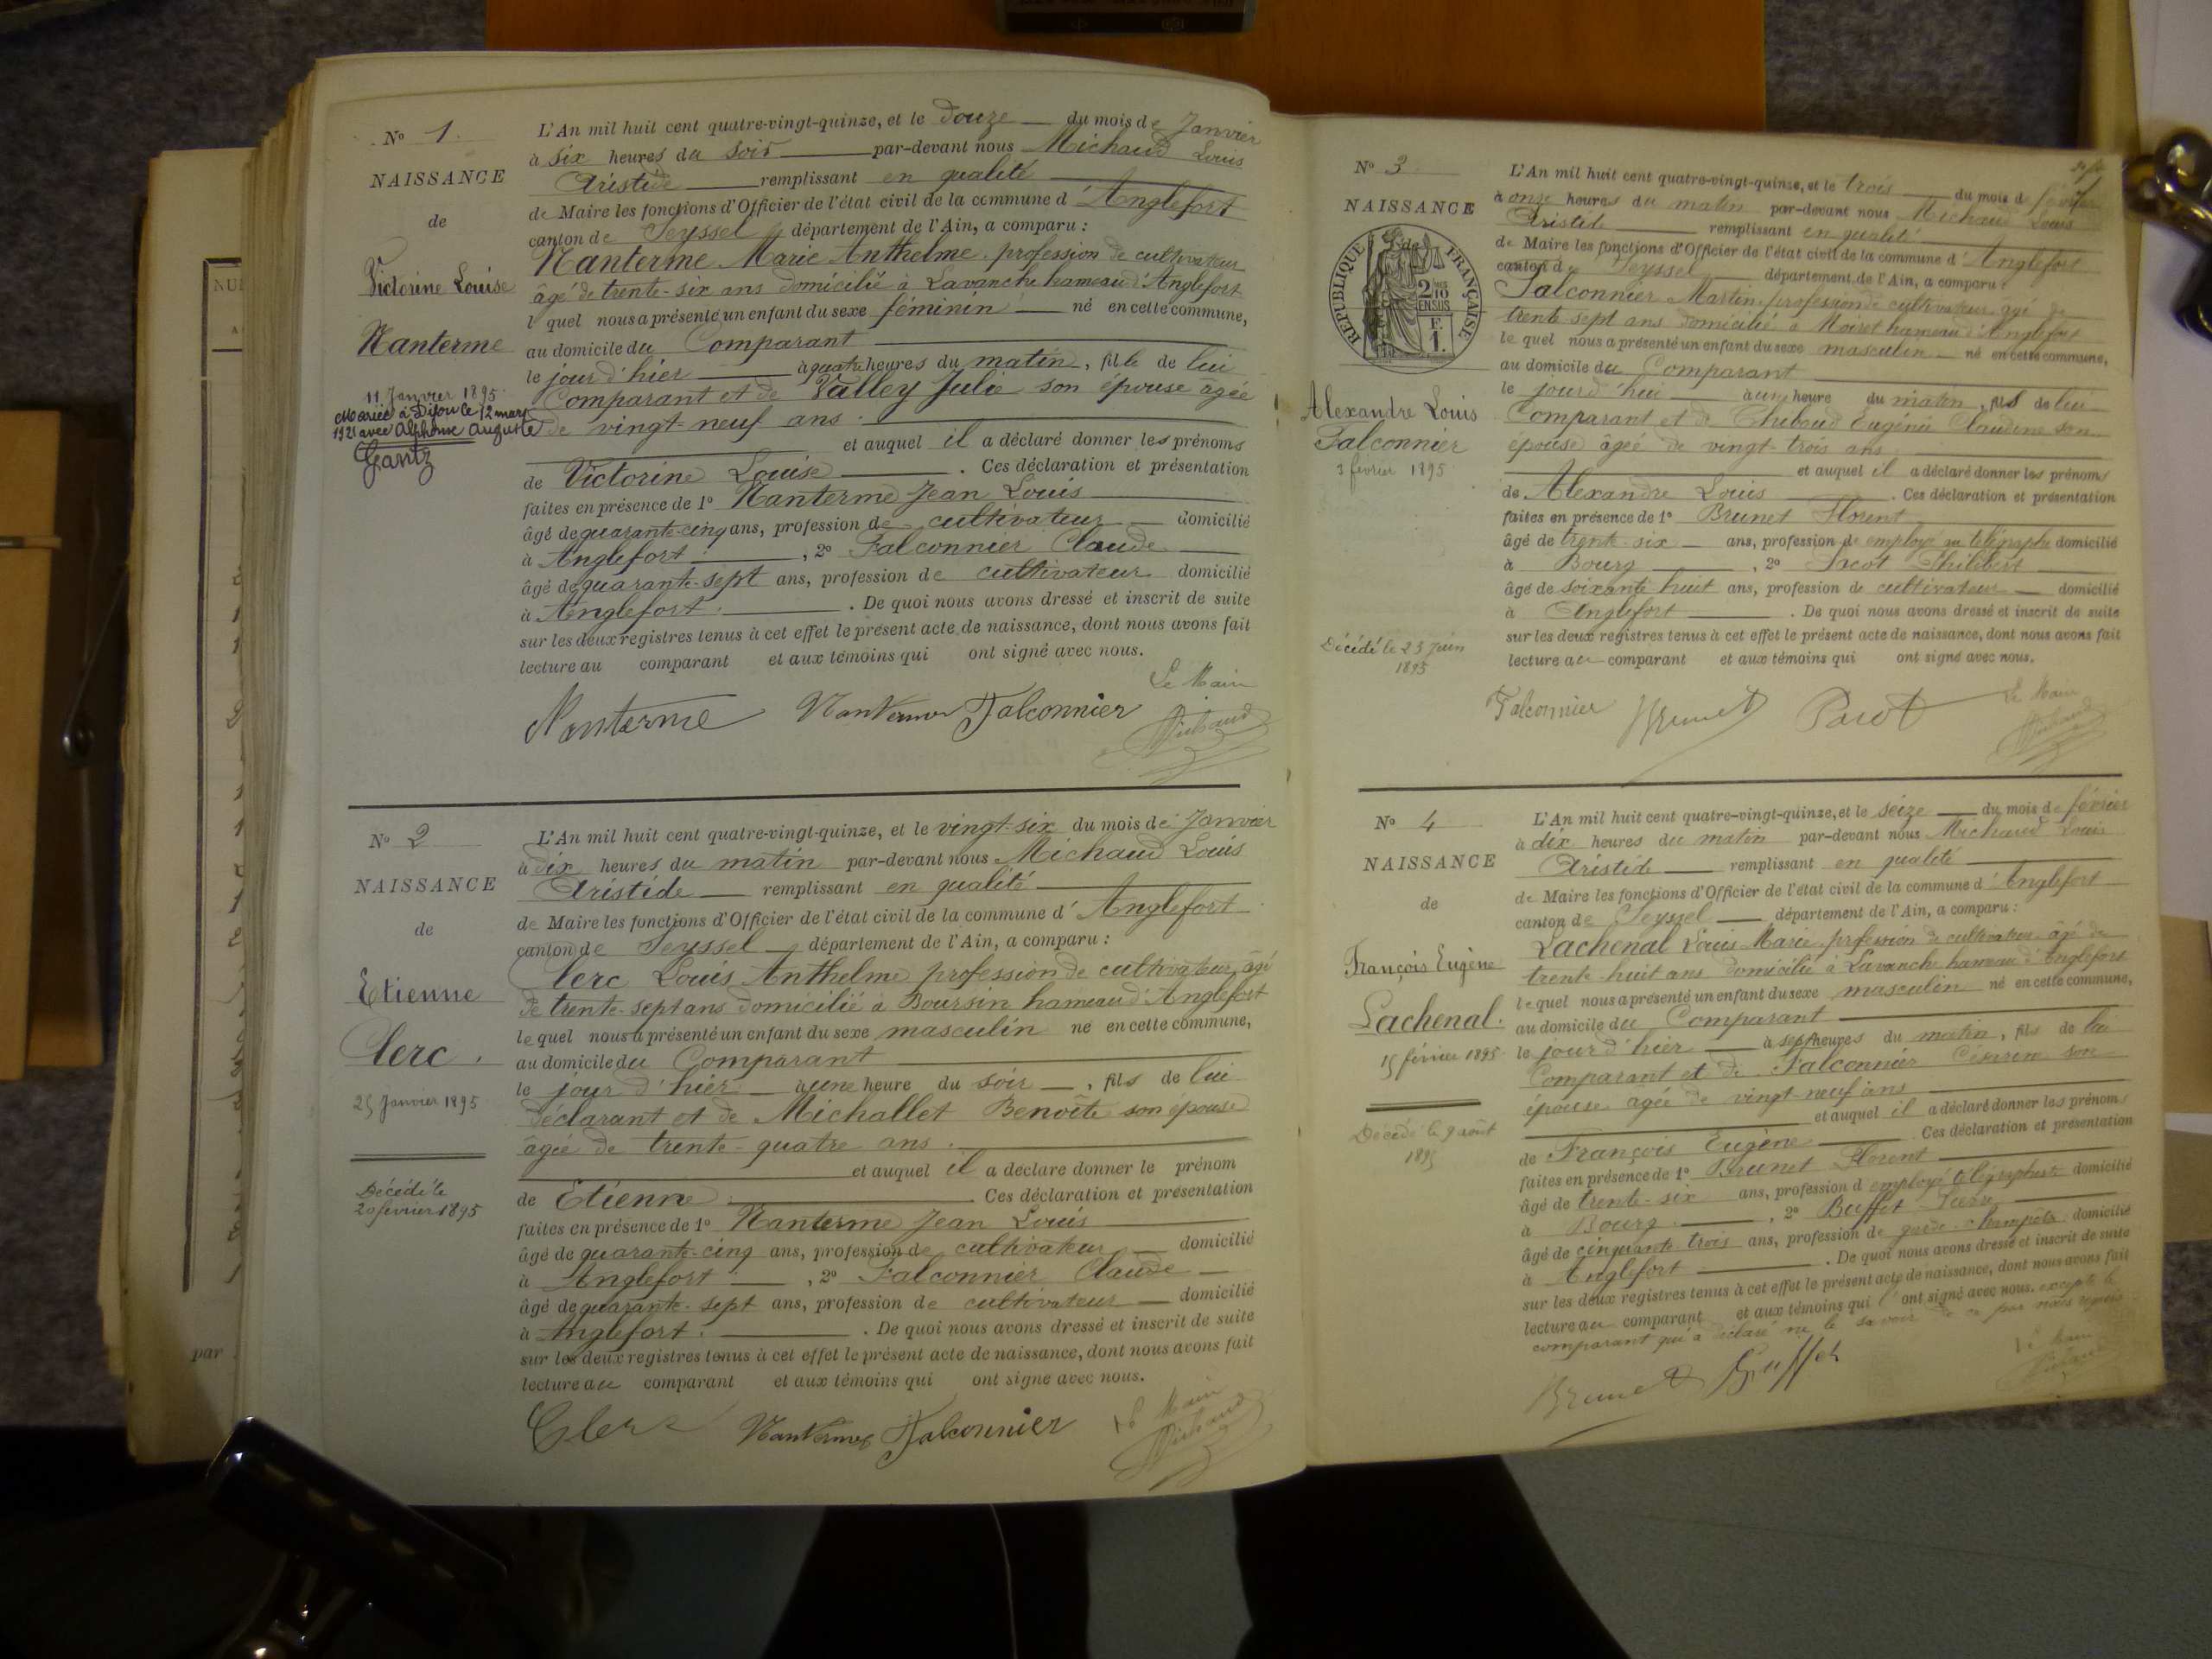 Nº 1.
NAISSANCE
de
Victorine Louise
Nanterme
11 Janvier 1895.
Mariée à Dijon le 12 mars
1921 avec Alphonse Auguste
Gantz
L'An mil huit cent quatre-vingt-quinze, et le douze du mois de Janvier
à six heures du soir par-devant nous Michaud Louis
Aristide remplissant en qualité
de Maire les fonctions d'Officier de l'état civil de la commune d'Anglefort
canton de Seyssel, département de l'Ain, a comparu :
Nanterme Marie Anthelme profession de cultivateur
âgé de trente-six ans domicilié à Lavanche hameau d'Anglefort
lequel nous a présenté un enfant du sexe féminin né en cette commune,
au domicile du Comparant
le jour d'hier à quatre heures du matin, fille de lui
Comparant et de Valley Julie son épouse âgée
de vingt-neuf ans.
et auquel il a déclaré donner les prénoms
de Victorine Louise. Ces déclaration et présentation
faites en présence de 1º Nanterme Jean Louis
âgé de quarante-cinq ans, profession de cultivateur domicilié
à Anglefort, 2º Falconnier Claude
âgé de quarante-sept ans, profession de cultivateur domicilié
à Anglefort. De quoi nous avons dressé et inscrit de suite
sur les deux registres tenus à cet effet le présent acte de naissance, dont nous avons fait
lecture au comparant et aux témoins qui ont signé avec nous.
Le Maire
Nanterme Nanterme Falconnier Michaud
Nº 2
NAISSANCE
de
Etienne
Clerc.
25 Janvier 1895
Décédé le
20 février 1895
L'An mil huit cent quatre-vingt-quinze, et le vingt-six du mois de Janvier
à dix heures du matin par-devant nous Michaud Louis
Aristide remplissant en qualité
de Maire les fonctions d'Officier de l'état civil de la commune d'Anglefort
canton de Seyssel, département de l'Ain, a comparu :
Clerc Louis Anthelme profession de cultivateur, âgé
de trente-sept ans domicilié à Boursin hameau d'Anglefort
lequel nous a présenté un enfant du sexe masculin né en cette commune,
au domicile du Comparant
le jour d'hier à une heure du soir, fils de lui
déclarant et de Michallet Benoîte son épouse
âgée de trente-quatre ans.
et auquel il a déclaré donner le prénom
de Etienne. Ces déclaration et présentation
faites en présence de 1º Nanterme Jean Louis
âgé de quarante-cinq ans, profession de cultivateur domicilié
à Anglefort, 2º Falconnier Claude
âgé de quarante-sept ans, profession de cultivateur domicilié
à Anglefort. De quoi nous avons dressé et inscrit de suite
sur les deux registres tenus à cet effet le présent acte de naissance, dont nous avons fait
lecture au comparant et aux témoins qui ont signé avec nous.
Le Maire
Clerc Nanterme Falconnier Michaud
Nº 3
NAISSANCE
de
RÉPUBLIQUE FRANÇAISE
2/10 EN SUS
F. 1.
Alexandre Louis
Falconnier
3 février 1895
Décédé le 23 Juin
1895
L'An mil huit cent quatre-vingt-quinze, et le trois du mois de février
à onze heures du matin par-devant nous Michaud Louis
Aristide remplissant en qualité
de Maire les fonctions d'Officier de l'état civil de la commune d'Anglefort
canton de Seyssel département de l'Ain, a comparu :
Falconnier Martin profession de cultivateur âgé de
trente sept ans domicilié à Moiret hameau d'Anglefort
lequel nous a présenté un enfant du sexe masculin né en cette commune,
au domicile du Comparant
le jourd'hui à une heure du matin, fils de lui
Comparant et de Thibaud Eugénie Claudine son
épouse âgée de vingt-trois ans
et auquel il a déclaré donner les prénoms
de Alexandre Louis. Ces déclaration et présentation
faites en présence de 1º Brunet Florent
âgé de trente-six ans, profession de employé au télégraphe domicilié
à Bourg, 2º Pacot Philibert
âgé de soixante huit ans, profession de cultivateur domicilié
à Anglefort. De quoi nous avons dressé et inscrit de suite
sur les deux registres tenus à cet effet le présent acte de naissance, dont nous avons fait
lecture au comparant et aux témoins qui ont signé avec nous.
Le Maire
Falconnier Brunet Pacot Michaud
Nº 4
NAISSANCE
de
François Eugène
Lachenal.
15 février 1895
Décédé le 9 août
1895
L'An mil huit cent quatre-vingt-quinze, et le seize du mois de février
à dix heures du matin par-devant nous Michaud Louis
Aristide remplissant en qualité
de Maire les fonctions d'Officier de l'état civil de la commune d'Anglefort
canton de Seyssel département de l'Ain, a comparu :
Lachenal Louis Marie profession de cultivateur âgé de
trente-huit ans domicilié à Lavanche hameau d'Anglefort
lequel nous a présenté un enfant du sexe masculin né en cette commune,
au domicile du Comparant
le jour d'hier à sept heures du matin, fils de lui
Comparant et de Falconnier son
épouse âgée de vingt-neuf ans
et auquel il a déclaré donner les prénoms
de François Eugène. Ces déclaration et présentation
faites en présence de 1º Brunet Florent
âgé de trente-six ans, profession d employé télégraphiste domicilié
à Bourg, 2º Buffet
âgé de cinquante trois ans, profession de garde-champêtre domicilié
à Anglefort. De quoi nous avons dressé et inscrit de suite
sur les deux registres tenus à cet effet le présent acte de naissance, dont nous avons fait
lecture au comparant et aux témoins qui l'ont signé avec nous. excepté le
comparant qui a déclaré ne le savoir de ce par nous requis
Le Maire
Brunet Buffet Michaud
par